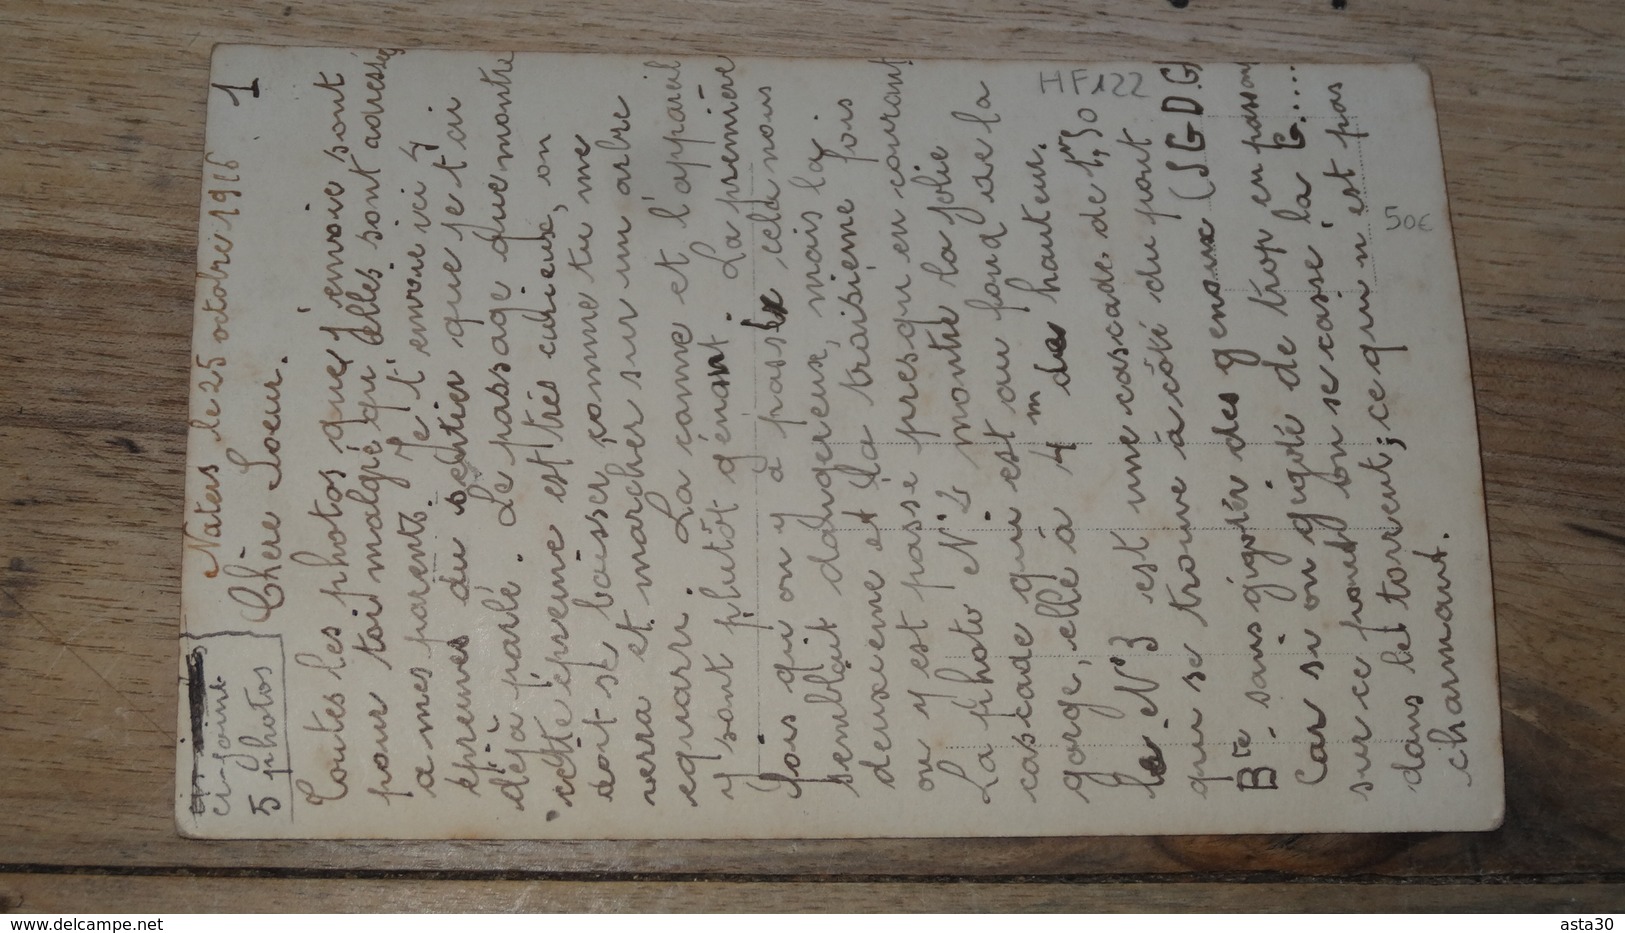 Naters le 25 octobre 1916
1
ci-joint
5 photos
Chère Soeur.
Toutes les photos que j'envoie sont
pour toi malgré qu'elles sont adressées
a mes parents. Je t'envoie ici 4
épreuves du sentier que je t'ai
déjà parlé. Le passage que montre
cette épreuve est très curieuse, on
doit se baisser, comme tu me
verra et marcher sur un arbre
equarri. La canne et l'appareil
y sont plutôt génant. La première
fois qu'on y a passé cela nous
semblait dangereux, mais la
deuxieme et la troisième fois
on y est passé presqu'en courant
La photo N°2 montre la jolie
cascade qui est au fond de la
gorge, elle à 4m de hauteur.
le N°3 est une cascade de 1m,50
qui se trouve à côté du pont
Bte sans gigoter des genoux (SGDG)
Car si on gigote de trop en passant
sur ce pont on se casse la G....
dans le torrent; ce qui n'est pas
charmant.
HF122
50€
www.delcampe.net
asta30